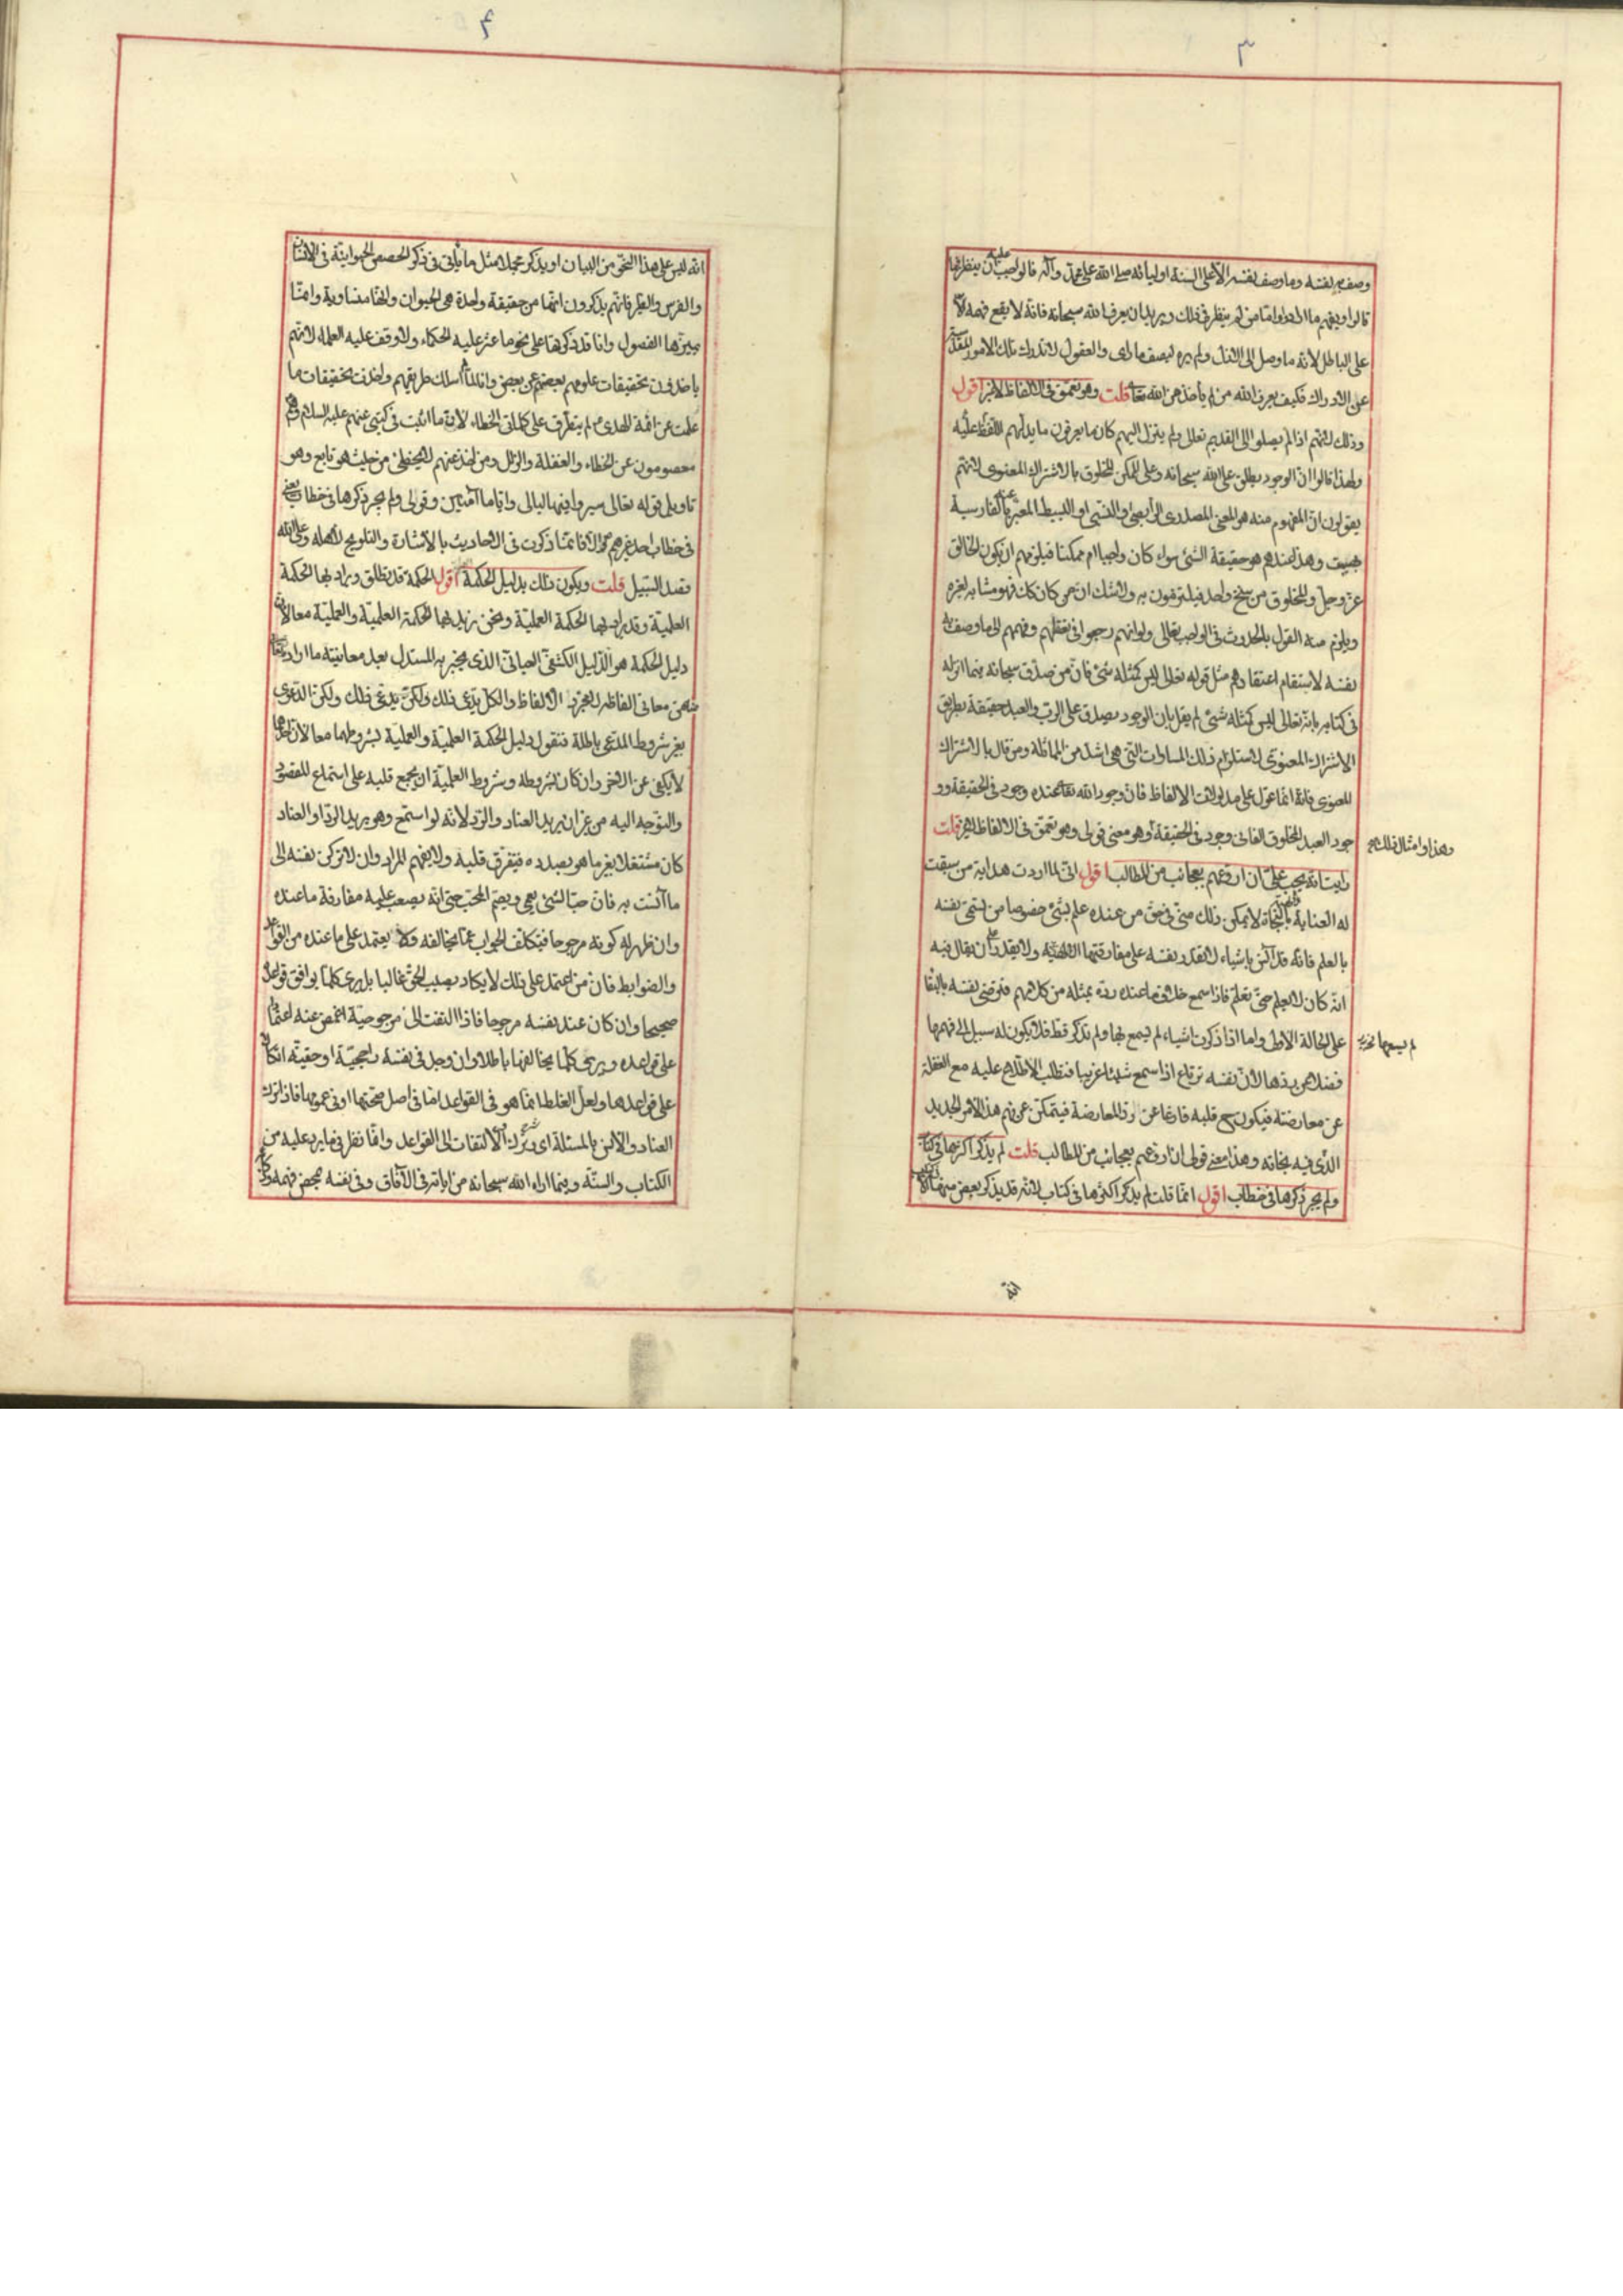 ٣
وصف به نفسه وما وصف نفسه الا على السنة اوليائه صلى الله على محمد وآله فالواجب عليه ان ينظر فيما
قالوا ويفهم ما ارادوا واما من لم ينظر في ذلك ويريد ان يعرف الله سبحانه فانه لا يقع فهمه الا
على الباطل لانه ما وصل الى الازل ولم يره ليصف ما رأى والعقول لا تدرك تلك الامور المقدسة
عن الادراك فكيف يعرف الله من لم يأخذ عن الله تعالى قلت وهو تعمق في الالفاظ لا غير اقول
وذلك لانهم اذا لم يصلوا الى القديم تعالى ولم ينزل اليهم كان ما يعرفون ما يدلهم اللفظ عليه
ولهذا قالوا ان الوجود يطلق على الله سبحانه وعلى الممكن المخلوق بالاشتراك المعنوي لانهم
يقولون ان المفهوم منه هو المعنى المصدري الرابطي او النسبي او البسيط المعبر عنه بالفارسية
بهست وهذا عندهم هو حقيقة الشئ سواء كان واجبا ام ممكنا فيلزمهم ان يكون الخالق
عز وجل والمخلوق من سنخ واحد فيلتزمون به ولا شك ان من كان كك فهو مشابه لغيره
ويلزم منه القول بالحدوث في الواجب تعالى ولو انهم رجعوا في تعقلهم وفهمهم الى ما وصف به
نفسه لاستقام اعتقادهم مثل قوله تعالى ليس كمثله شئ فان من صدق سبحانه فيما انزله
في كتابه بانه تعالى ليس كمثله شئ لم يقل بان الوجود يصدق على الرب والعبد حقيقة بطريق
الاشتراك المعنوي لاستلزام ذلك المساوات التي هي اشد من المماثلة ومن قال بالاشتراك
المعنوي فانه انما عول على مدلولات الالفاظ فان وجود الله تعالى عنده وجود في الحقيقة وو
جود العبد المخلوق الفاني وجود في الحقيقة وهو معنى قولي وهو تعمق في الالفاظ لا غير قلت
وهذا وامثال ذلك
رايت انه يجب علي ان اروعهم بعجائب من المطالب اقول اني لما اردت هداية من سبقت
له العناية بالنجاة لا يمكن ذلك مني في حق من عنده علم بشئ خصوصا من يسمي نفسه
بالعلم فانه قد انس باشياء لا تقدر نفسه على مفارقتها ولا يقدر ان يقال فيه
انه كان لا يعلم حتى تعلم فاذا سمع خلاف ما عنده رده بمثله من كلامهم فترضى نفسه بالبقا
على الحالة الاولى واما اذا ذكرت اشياء لم يسمع بها ولم تذكر قط فلا يكون له سبيل الى فهمها
لم يسمعها
فضلا عن ردها لان نفسه ترتاع اذا سمع شيئا غريبا فتطلب الاطلاع عليه مع الغفلة
عن معارضته فيكون ح قلبه فارغا عن رد المعارضة فيتمكن عن فهم هذا الامر الجديد
الذي فيه نجاته وهذا معنى قولي ان اروعهم بعجائب من المطالب قلت لم يذكر اكثرها في كتاب
ولم يجر ذكرها في خطاب اقول انما قلت لم يذكر اكثرها في كتاب لانه قد يذكر بعض منها الا
انه
٤
انه ليس على هذا النحو من البيان او يذكر مجملا مثل ما يأتي في ذكر الحصص الحيوانية في الانسان
والفرس والطير فانهم يذكرون انها من حقيقة واحدة هي الحيوان وانها متساوية وانما
ميزتها الفصول وانا قد ذكرتها على نحو ما عثر عليه الحكماء ولا وقف عليه العلماء لانهم
ياخذون تحقيقات علومهم بعضهم عن بعض وانا لما لم اسلك طريقهم واخذت تحقيقات ما
علمت عن ائمة الهدى ع لم يتطرق على كلماتي الخطاء لان ما اثبت في كتبي عنهم عليهم السلام وهم
معصومون عن الخطاء والغفلة والزلل ومن اخذ عنهم لا يخطئ من حيث هو تابع وهو
تاويل قوله تعالى سيروا فيها ليالي واياما آمنين وقولي ولم يجر ذكرها في خطاب يعني
في خطاب احد غيرهم ع والا فانما ذكرت في الاحاديث بالاشارة والتلويح لاهله وعلى الله
قصد السبيل قلت ويكون ذلك بدليل الحكمة اقول الحكمة قد تطلق ويراد بها الحكمة
العلمية وقد يراد بها الحكمة العملية ونحن نريد بهما الحكمة العلمية والعملية معا لان
دليل الحكمة هو الدليل الكشفي العياني الذي يخبر به المستدل بعد معاينة ما اراد
من معاني الفاظه لا مجرد الالفاظ والكل يدعى ذلك ولكن الدعوى
بغير شروط المدعى باطلة فنقول دليل الحكمة العلمية والعملية بشروطهما معا لان احدهما
لا يكفي عن الاخر وان كان بشروطه وشروط العلمية ان يجمع قلبه على استماع المقصود
والتوجه اليه من غير ان يريد العناد والرد لانه لو استمع وهو يريد الرد او العناد
كان مشتغلا بغير ما هو بصدده فيتفرق قلبه ولا يفهم المراد وان لا تركن نفسه الى
ما آنست به فان حب الشئ يعمي ويصم المحب حتى انه يصعب عليه مفارقة ما عنده
وان ظهر له كونه مرجوحا فيتكلف الجواب عما يخالفه ولا يعتمد على ما عنده من القواعد
والضوابط فان من اعتمد على ذلك لا يكاد يصيب الحق غالبا بل يرى كلما يوافق قواعده
صحيحا وان كان عند نفسه مرجوحا فاذا التفت الى مرجوحيته اغمض عنه اعتمادا
على قواعده ويرى كلما يخالفها باطلا وان وجد في نفسه راجحيته او حقيته اتكالا
على قواعدها ولعل الغلط انما هو في القواعد اما في اصل صحتها او في عمومها فاذا ترك
العناد والانس بالمسئلة اي وترك الالتفات الى القواعد وانما نظر في ما يرد عليه من
الكتاب والسنة وفيما اراه الله سبحانه من اياته في الآفاق وفي نفسه بمحض فهمه